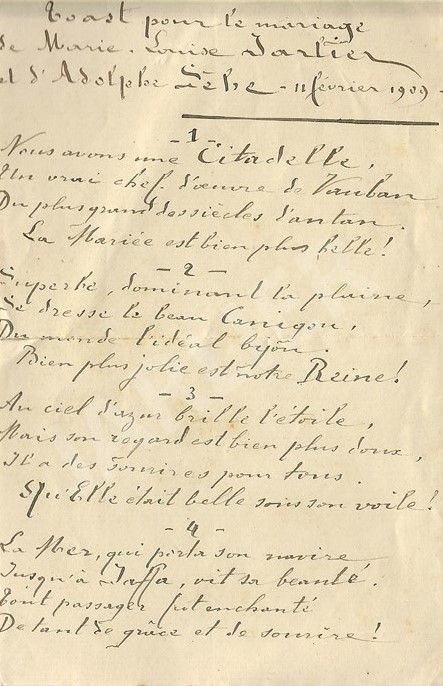 Toast pour le mariage
de Marie-Louise Jarlier
et d'Adolphe Sèbe - 11 février 1909 -
- 1 -
Nous avons une Citadelle,
Un vrai chef-d'œuvre de Vauban
Du plus grand des siècles d'antan.
La Mariée est bien plus belle!
- 2 -
Superbe, dominant la plaine,
Se dresse le beau Canigou,
Du monde l'idéal bijou.
Bien plus jolie est notre Reine!
- 3 -
Au ciel d'azur brille l'étoile,
Mais son regard est bien plus doux,
Il a des sourires pour tous.
Qu'Elle était belle sous son voile!
- 4 -
La Mer, qui porta son navire
Jusqu'à Jaffa, vit sa beauté.
Tout passager fut enchanté
De tant de grâce et de sourire!